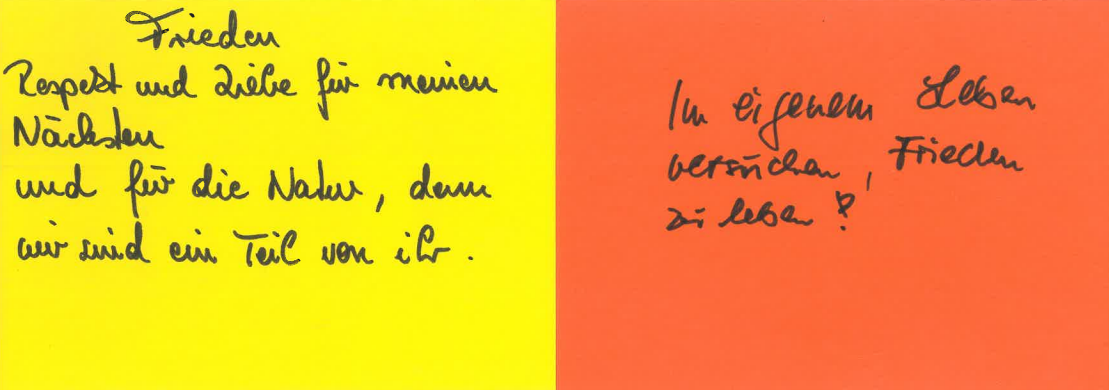 Frieden
Respekt und Liebe für meinen
Nächsten
und für die Natur, denn
wir sind ein Teil von ihr.
Im eigenem Leben
versuchen, Frieden
zu leben!